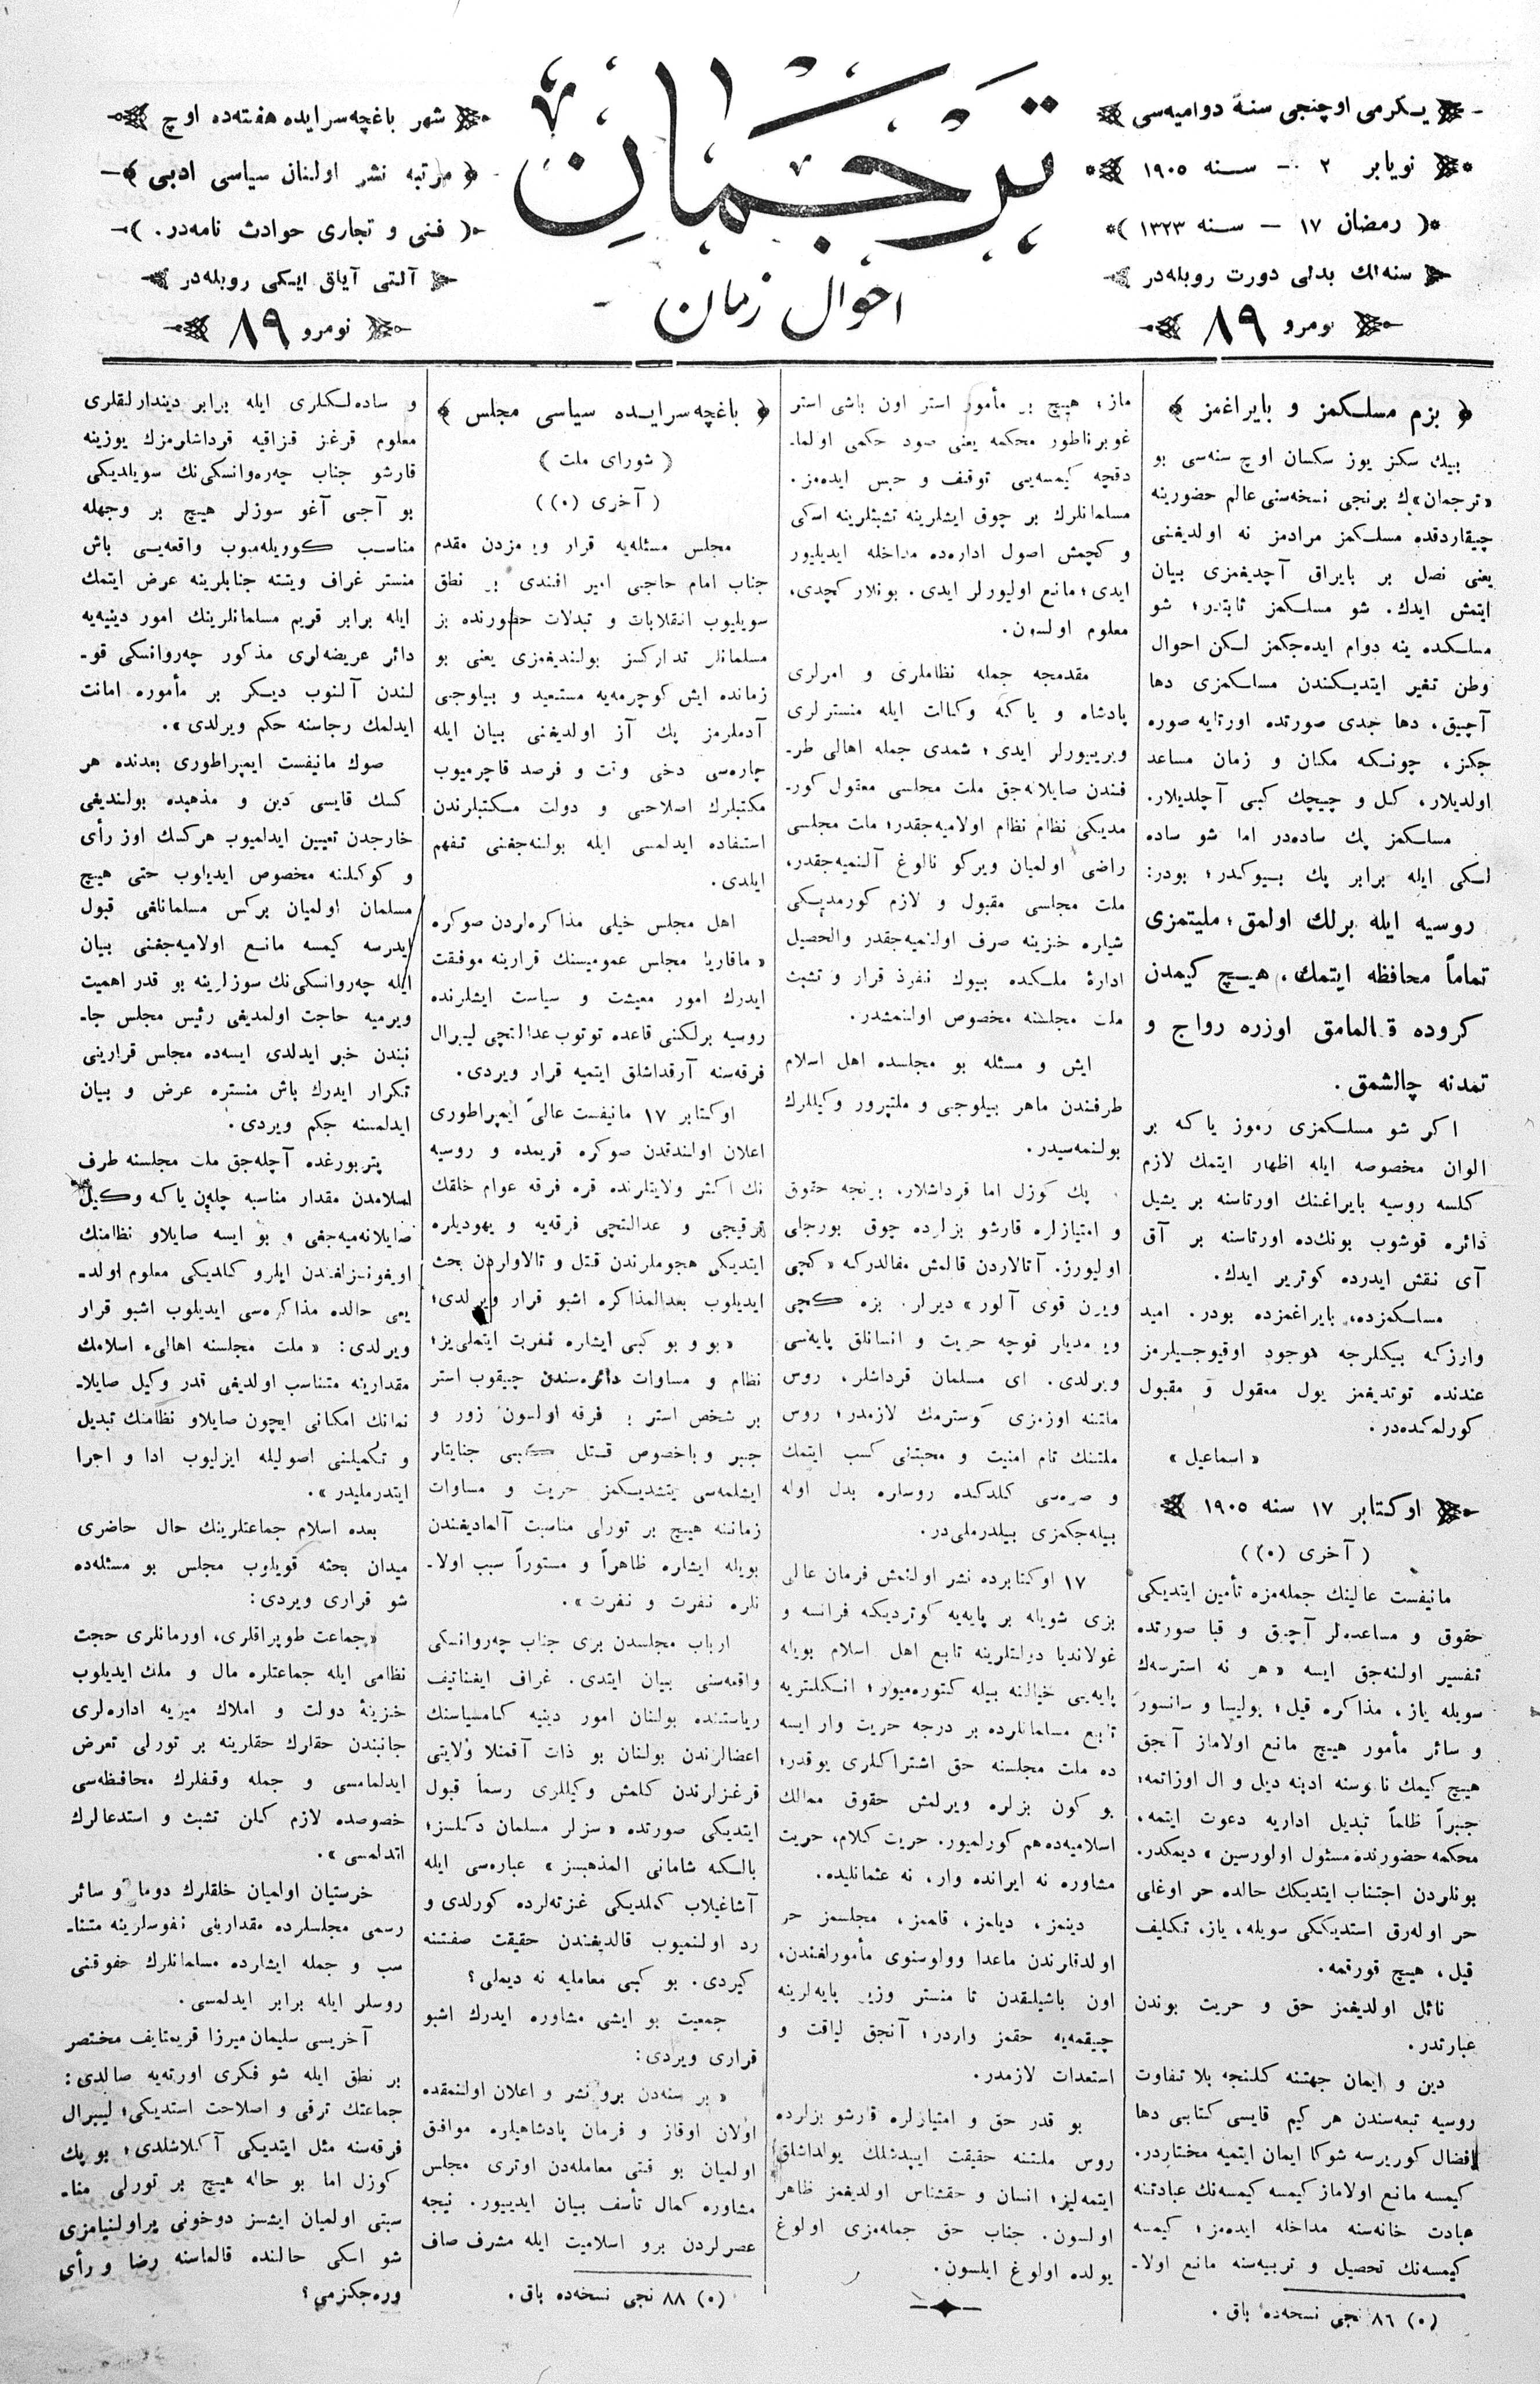 یكرمی اوچنجی سنهٔ دوامیه‌سی
نویابر ۲ — سنه ۱۹۰۵
( رمضان ۱۷ — سنه ۱۳۲۳ )
سنه‌لك بدلی دورت روبله‌در
نومرو ۸۹
ترجمان
احوال زمان
شهر باغچه‌سرایده هفته‌ده اوچ
مرتبه نشر اولنان سیاسی ادبی
( فنی و تجاری حوادث نامه‌در. )
آلتی آیلق ایكی روبله‌در
نومرو ۸۹
﴿ بزم مسلكمز و بایراغمز ﴾
بیك سكز یوز سكسان اوچ سنه‌سی بو
«ترجمان»ك برنجی نسخه‌سنی عالم حضورینه
چیقاردقده مسلكمز مرادمز نه اولدیغنی
یعنی نصل بر بایراق آچدیغمزی بیان
ایتمش ایدك. شو مسلكمز ثابتدر؛ شو
مسلكده ینه دوام ایده‌جكمز لكن احوال
وطن تغیر ایتدیكندن مسلكمزی دها
آچیق، دها جدی صورتده اورتایه صوره
جكز، چونكه مكان و زمان مساعد
اولدیلار، كل و چیچك كبی آچلدیلار.
مسلكمز پك ساده‌در اما شو ساده
لكی ایله برابر پك بیوكدر؛ بودر:
روسیه ایله برلك اولمق؛ ملیتمزی
تماماً محافظه ایتمك، هیچ كیمدن
كروده قالمامق اوزره رواج و
تمدنه چالشمق.
اكر شو مسلكمزی رموز یاكه بر
الوان مخصوصه ایله اظهار ایتمك لازم
كلسه روسیه بایراغنك اورتاسنه بر یشیل
دائره قوشوب بونك‌ده اورتاسنه بر آق
آی نقش ایدرده كوتریر ایدك.
مسلكمزده، بایراغمزده بودر. امید
وارزكه بیكلرجه موجود اوقیوجیلرمز
عندنده توتدیغمز یول معقول و مقبول
كورلمكده‌در.
« اسماعیل »
اوكتابر ۱۷ سنه ۱۹۰۵
( آخری (٥) )
مانیفست عالینك جمله‌مزه تأمین ایتدیكی
حقوق و مساعده‌لر آچیق و قبا صورتده
تفسیر اولنه‌جق ایسه « هر نه استرسه‌ك
سویله یاز، مذاكره قیل؛ بولیسا و سانسور
و سائر مأمور هیچ مانع اولاماز آنجق
هیچ كیمك ناموسنه ادبنه دیل و ال اوزاتمه؛
جبراً ظلماً تبدیل اداریه دعوت ایتمه،
محكمه حضورنده مسئول اولورسین » دیمكدر.
بونلردن اجتناب ایتدیكك حالده حر اوغلی
حر اوله‌رق استدیككی سویله، یاز، تكلیف
قیل، هیچ قورقمه.
نائل اولدیغمز حق و حریت بوندن
عبارتدر.
دین و ایمان جهتنه كلنجه بلا تفاوت
روسیه تبعه‌سندن هر كیم قایسی كتابی دها
افضال كوررسه شوكا ایمان ایتمیه مختاردر.
كیمسه مانع اولاماز كیمسه كیمسه‌نك عبادتنه
عبادت خانه‌سنه مداخله ایده‌مز؛ كیمسه
كیمسه‌نك تحصیل و تربیه‌سنه مانع اولا-
(٥) ٨٦ نجی نسخه‌ده باق.
ماز؛ هیچ بر مأمور استر اون باشی استر
غوبرناطور محكمه یعنی صود حكمی اولما-
دقچه كیمسه‌یی توقیف و حبس ایده‌مز.
مسلمانلرك بر چوق ایشلرینه تشبثلرینه اسكی
و كچمش اصول اداره‌ده مداخله ایدیلیور
ایدی؛ مانع اولیورلر ایدی. بونلار كچدی،
معلوم اولسون.
مقدمجه جمله نظاملری و امرلری
پادشاه و یاكه وكالت ایله منسترلری
ویریبورلر ایدی؛ شمدی جمله اهالی طر-
فندن صایلانه‌جق ملت مجلسی معقول كور-
مدیكی نظام نظام اولامیه‌جقدر؛ ملت مجلسی
راضی اولمیان ویركو نالوغ آلنمیه‌جقدر،
ملت مجلسی مقبول و لازم كورمدیكی
شیلره خزینه صرف اولنمیه‌جقدر والحصیل
ادارهٔ ملكده بیوك نفوذ قرار و تشبث
ملت مجلسنه مخصوص اولنمشدر.
ایش و مسئله بو مجلسده اهل اسلام
طرفندن ماهر بیلوجی و ملتپرور وكیللرك
بولنمه‌سیدر.
پك كوزل اما قرداشلار، برنجه حقوق
و امتیازلره قارشو بزلرده چوق بورجلی
اولیورز. آتالاردن قالمش مقالدركه « كچی
ویرن قوی آلور » دیرلر. بزه كچی
ویرمدیلر قوجه حریت و انسانلق پایه‌سی
ویرلدی. ای مسلمان قرداشلر، روس
ملتنه اوزمزی كوسترمك لازمدر؛ روس
ملتنك تام امنیت و محبتنی كسب ایتمك
و صره‌سی كلدكده روسلره بدل اوله
بیله‌جكمزی بیلدرملی‌در.
۱۷ اوكتابرده نشر اولنمش فرمان عالی
بزی شویله بر پایه‌یه كوتردیكه فرانسه و
غولاندیا دولتلرینه تابع اهل اسلام بویله
پایه‌یی خیالنه بیله كتوره‌میور؛ انكلتریه
تابع مسلمانلرده بر درجه حریت وار ایسه
ده ملت مجلسنه حق اشتراكلری یوقدر؛
بو كون بزلره ویرلمش حقوق ممالك
اسلامیه‌ده هم كورلمیور. حریت كلام، حریت
مشاوره نه ایرانده وار، نه عثمانلیده.
دینمز، دیلمز، قلممز، مجلسمز حر
اولدقلرندن ماعدا وولوسنوی مأمورلغندن،
اون باشیلقدن تا منستر وزیر پایه‌لرینه
چیقمه‌یه حقمز واردر؛ آنجق لیاقت و
استعدات لازمدر.
بو قدر حق و امتیازلره قارشو بزلرده
روس ملتنه حقیقت ایپدشلك یولداشلق
ایتمه‌لیز؛ انسان و حقشناس اولدیغمز ظاهر
اولسون. جناب حق جمله‌مزی اولوغ
یولده اولوغ ایلسون.
﴿ باغچه‌سرایده سیاسی مجلس ﴾
( شورای ملت )
( آخری (٥) )
مجلس مسئله‌یه قرار ویرمزدن مقدم
جناب امام حاجی امیر افندی بر نطق
سویلیوب انقلابات و تبدلات حضورنده بز
مسلمانلر تداركسز بولندیغمزی یعنی بو
زمانده ایش كوچرمه‌یه مستعید و بیلوجی
آدملرمز پك آز اولدیغنی بیان ایله
چاره‌سی دخی وقت و فرصد قاچرمیوب
مكتبلرك اصلاحی و دولت مكتبلرندن
استفاده ایدلمسی ایله بولنه‌جغنی تفهم
ایلدی.
اهل مجلس خیلی مذاكره‌لردن صوكره
« ماقاریا مجلس عمومیسنك قرارینه موفقت
ایدرك امور معیشت و سیاست ایشلرنده
روسیه برلكنی قاعده توتوب عدالتچی لیبرال
فرقه‌سنه آرقداشلق ایتمیه قرار ویردی.
اوكتابر ۱۷ مانیفست عالیٔ ایمپراطوری
اعلان اولندقدن صوكره قریمده و روسیه
نك اكثر ولایتلرنده قره فرقه عوام خلقك
ترقیجی و عدالتچی فرقه‌یه و یهودیلره
ایتدیكی هجوملرندن قتل و تالاولردن بحث
ایدیلوب بعدالمذاكره اشبو قرار ویرلدی؛
« بو و بو كبی ایشلره نفرت ایتملی‌یز؛
نظام و مساوات دائره‌سندن چیقوب استر
بر شخص استر بر فرقه اولسون زور و
جبر و باخصوص قتل كبی جنایتلر
ایشلمه‌سی یتشدیكمز حریت و مساوات
زماننه هیچ بر تورلی مناسبت آلمادیغندن
بویله ایشلره ظاهراً و مستوراً سبب اولا-
نلره نفرت و نفرت ».
ارباب مجلسدن بری جناب چه‌روانسكی
واقعه‌سنی بیان ایتدی. غراف ایغناتیف
ریاستنده بولنان امور دینیه كامسیاسنك
اعضالرندن بولنان بو ذات آقمنلا ولایتی
قرغزلرندن كلمش وكیللری رسماً قبول
ایتدیكی صورتده « سزلر مسلمان دكلسز؛
بالكه شامانی المذهبسز » عباره‌سی ایله
آشاغیلاب كلدیكی غزته‌لرده كورلدی و
رد اولنمیوب قالدیغندن حقیقت صفتنه
كیردی. بو كبی معاملیه نه دیملی؟
جمعیت بو ایشی مشاوره ایدرك اشبو
قراری ویردی:
« بر سنه‌دن برو نشر و اعلان اولنمقده
اولان اوقاز و فرمان پادشاهیلره موافق
اولمیان بو قتی معامله‌دن اوتری مجلس
مشاوره كمال تأسف بیان ایدییور. نیجه
عصرلردن برو اسلامیت ایله مشرف صاف
(٥) ٨٨ نجی نسخه‌ده باق.
و ساده‌لكلری ایله برابر دیندارلقلری
معلوم قرغز قزاقیه قرداشلرمزك یوزینه
قارشو جناب چه‌ره‌وانسكی‌نك سویلدیكی
بو آجی آغو سوزلر هیچ بر وجهله
مناسب كوریله‌میوب واقعه‌یی باش
منستر غراف ویتته جنابلرینه عرض ایتمك
ایله برابر قریم مسلمانلرینك امور دینیه‌یه
دائر عریضه‌لری مذكور چه‌روانسكی قو-
لندن آلنوب دیكر بر مأموره امانت
ایدلمك رجاسنه حكم ویرلدی ».
صوك مانیفست ایمپراطوری بعدنده هر
كسك قایسی دین و مذهبده بولندیغی
خارجدن تعیین ایدلمیوب هركسك اوز رأی
و كوكلنه مخصوص ایدیلوب حتی هیچ
مسلمان اولمیان بركس مسلمانلغی قبول
ایدرسه كیمسه مانع اولامیه‌جغنی بیان
ایله چه‌روانسكی‌نك سوزلرینه بو قدر اهمیت
ویرمیه حاجت اولمدیغی رئیس مجلس جا-
نبندن خبر ایدلدی ایسه‌ده مجلس قرارینی
تكرار ایدرك باش منستره عرض و بیان
ایدلمسنه حكم ویردی.
پتربورغده آچله‌جق ملت مجلسنه طرف
اسلامدن مقدار مناسبه چلپن یاكه وكیل
صایلانه‌میه‌جغی و بو ایسه صایلاو نظامنك
اویغونسزلغندن ایلرو كلدیكی معلوم اولد-
یغی حالده مذاكره‌سی ایدیلوب اشبو قرار
ویرلدی: « ملت مجلسنه اهالیٔ اسلامك
مقدارینه متناسب اولدیغی قدر وكیل صایلا-
نمانك امكانی ایچون صایلاو نظامنك تبدیل
و تكمیلنی اصولیله ایزلیوب ادا و اجرا
ایتدرملیدر ».
بعده اسلام جماعتلرینك حال حاضری
میدان بحثه قویلوب مجلس بو مسئله‌ده
شو قراری ویردی:
« جماعت طوپراقلری، اورمانلری حجت
نظامی ایله جماعتلره مال و ملك ایدیلوب
خزینهٔ دولت و املاك میریه اداره‌لری
جانبندن حقلرك حقلرینه بر تورلی تعرض
ایدلمامسی و جمله وقفلرك محافظه‌سی
خصوصده لازم كلن تشبث و استدعالرك
اتدلمسی ».
خرستیان اولمیان خلقلرك دوما و سائر
رسمی مجلسلرده مقدارینی نفوسلرینه متنا-
سب و جمله ایشلرده مسلمانلرك حقوقنی
روسلر ایله برابر ایدلمسی.
آخریسی سلیمان میرزا قریمتایف مختصر
بر نطق ایله شو فكری اورته‌یه صالدی:
جماعتك ترقی و اصلاحت استدیكی؛ لیبرال
فرقه‌سنه مثل ایتدیكی آكلاشلدی؛ بو پك
كوزل اما بو حاله هیچ بر تورلی منا-
سبتی اولمیان ایشسز دوخونی پراولنیامزی
شو اسكی حالنده قالماسنه رضا و رأی
وره‌جكزمی؟